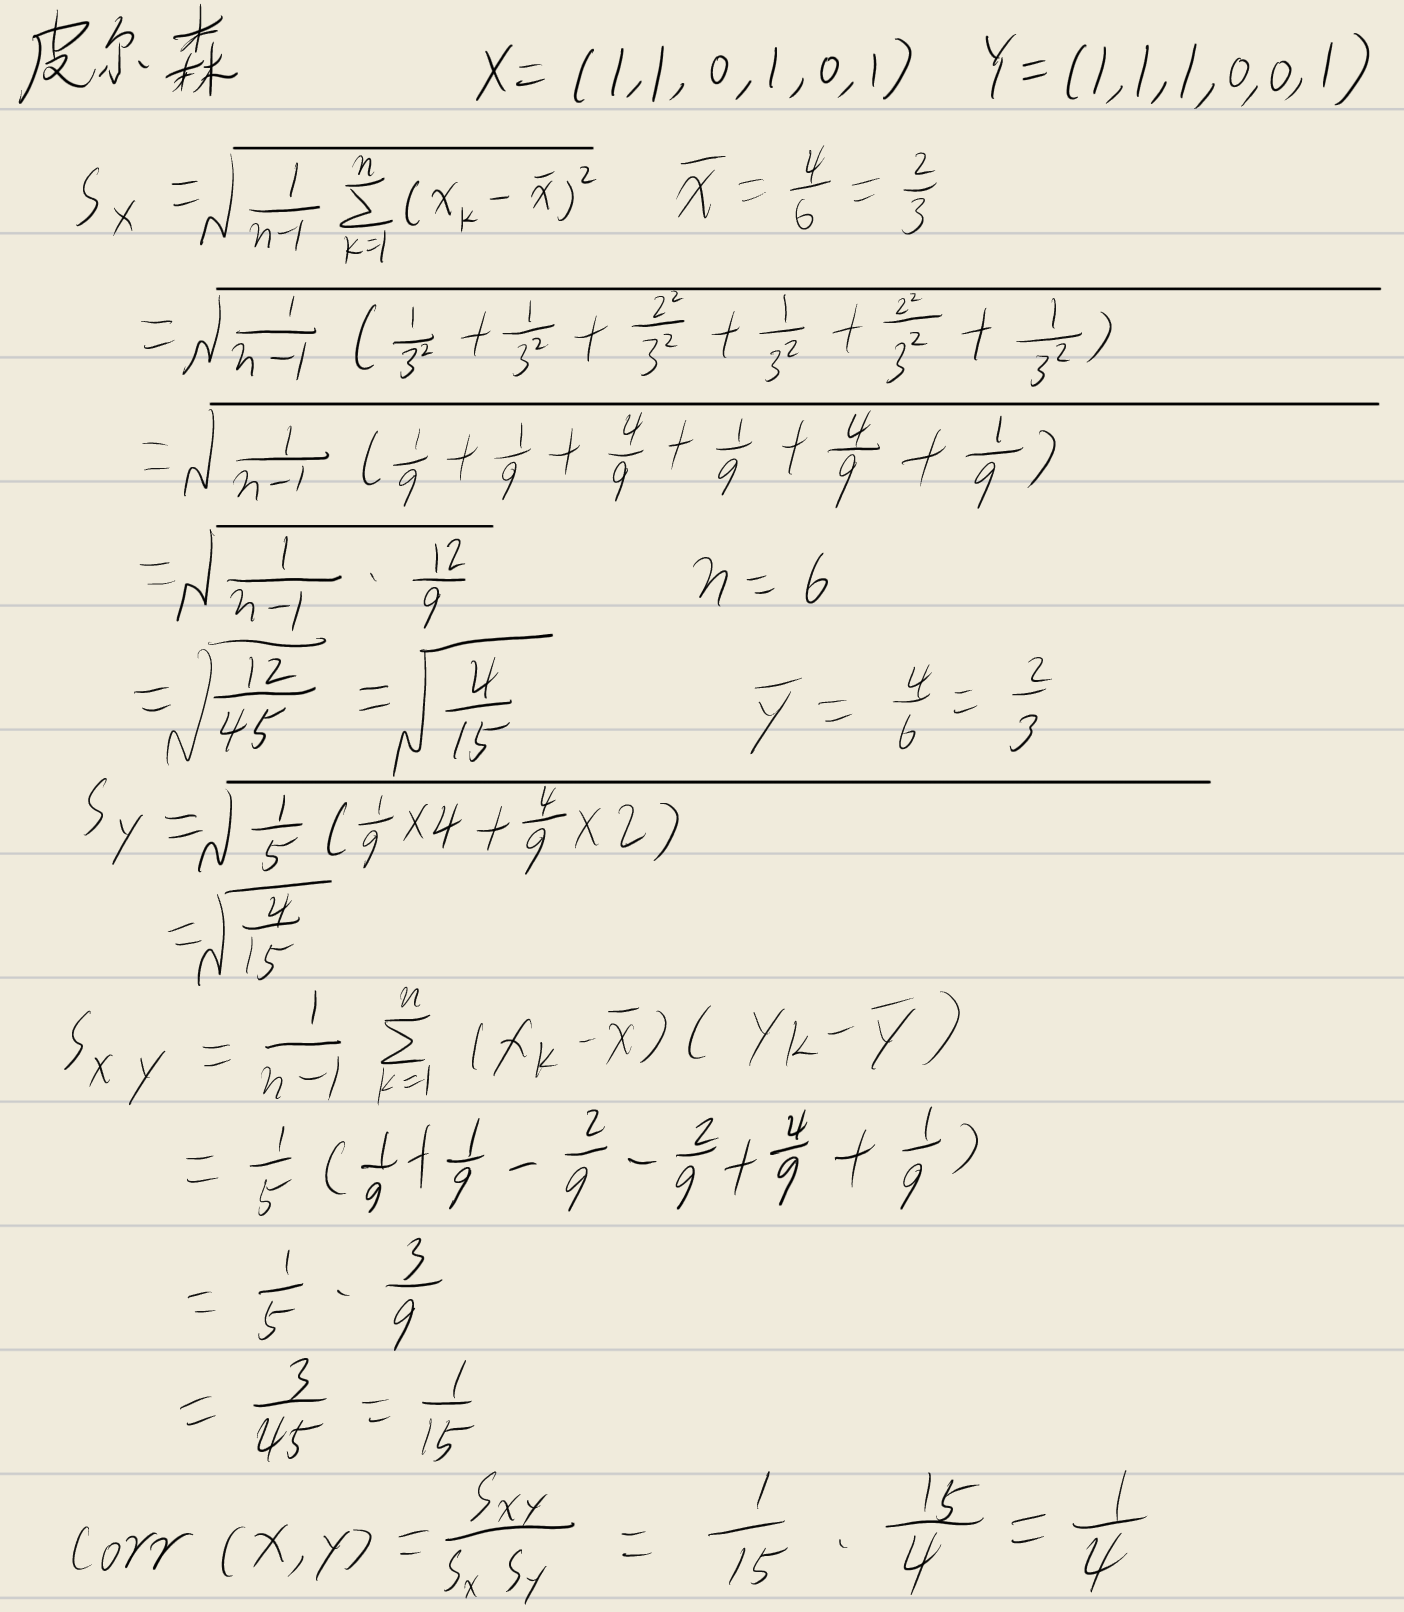 皮尔森 X=(1,1,0,1,0,1) Y=(1,1,1,0,0,1)
S_x = √(1/(n-1) ∑_{k=1}^{n} (x_k - x̄)²) x̄ = 4/6 = 2/3
= √(1/(n-1) (1/3² + 1/3² + 2²/3² + 1/3² + 2²/3² + 1/3²))
= √(1/(n-1) (1/9 + 1/9 + 4/9 + 1/9 + 4/9 + 1/9))
= √(1/(n-1) · 12/9) n = 6
= √(12/45) = √(4/15) ȳ = 4/6 = 2/3
S_y = √(1/5 (1/9 × 4 + 4/9 × 2))
= √(4/15)
S_xy = 1/(n-1) ∑_{k=1}^{n} (x_k - x̄)(y_k - ȳ)
= 1/5 (1/9 + 1/9 - 2/9 - 2/9 + 4/9 + 1/9)
= 1/5 · 3/9
= 3/45 = 1/15
corr (x,y) = S_xy/(S_x S_y) = 1/15 · 15/4 = 1/4